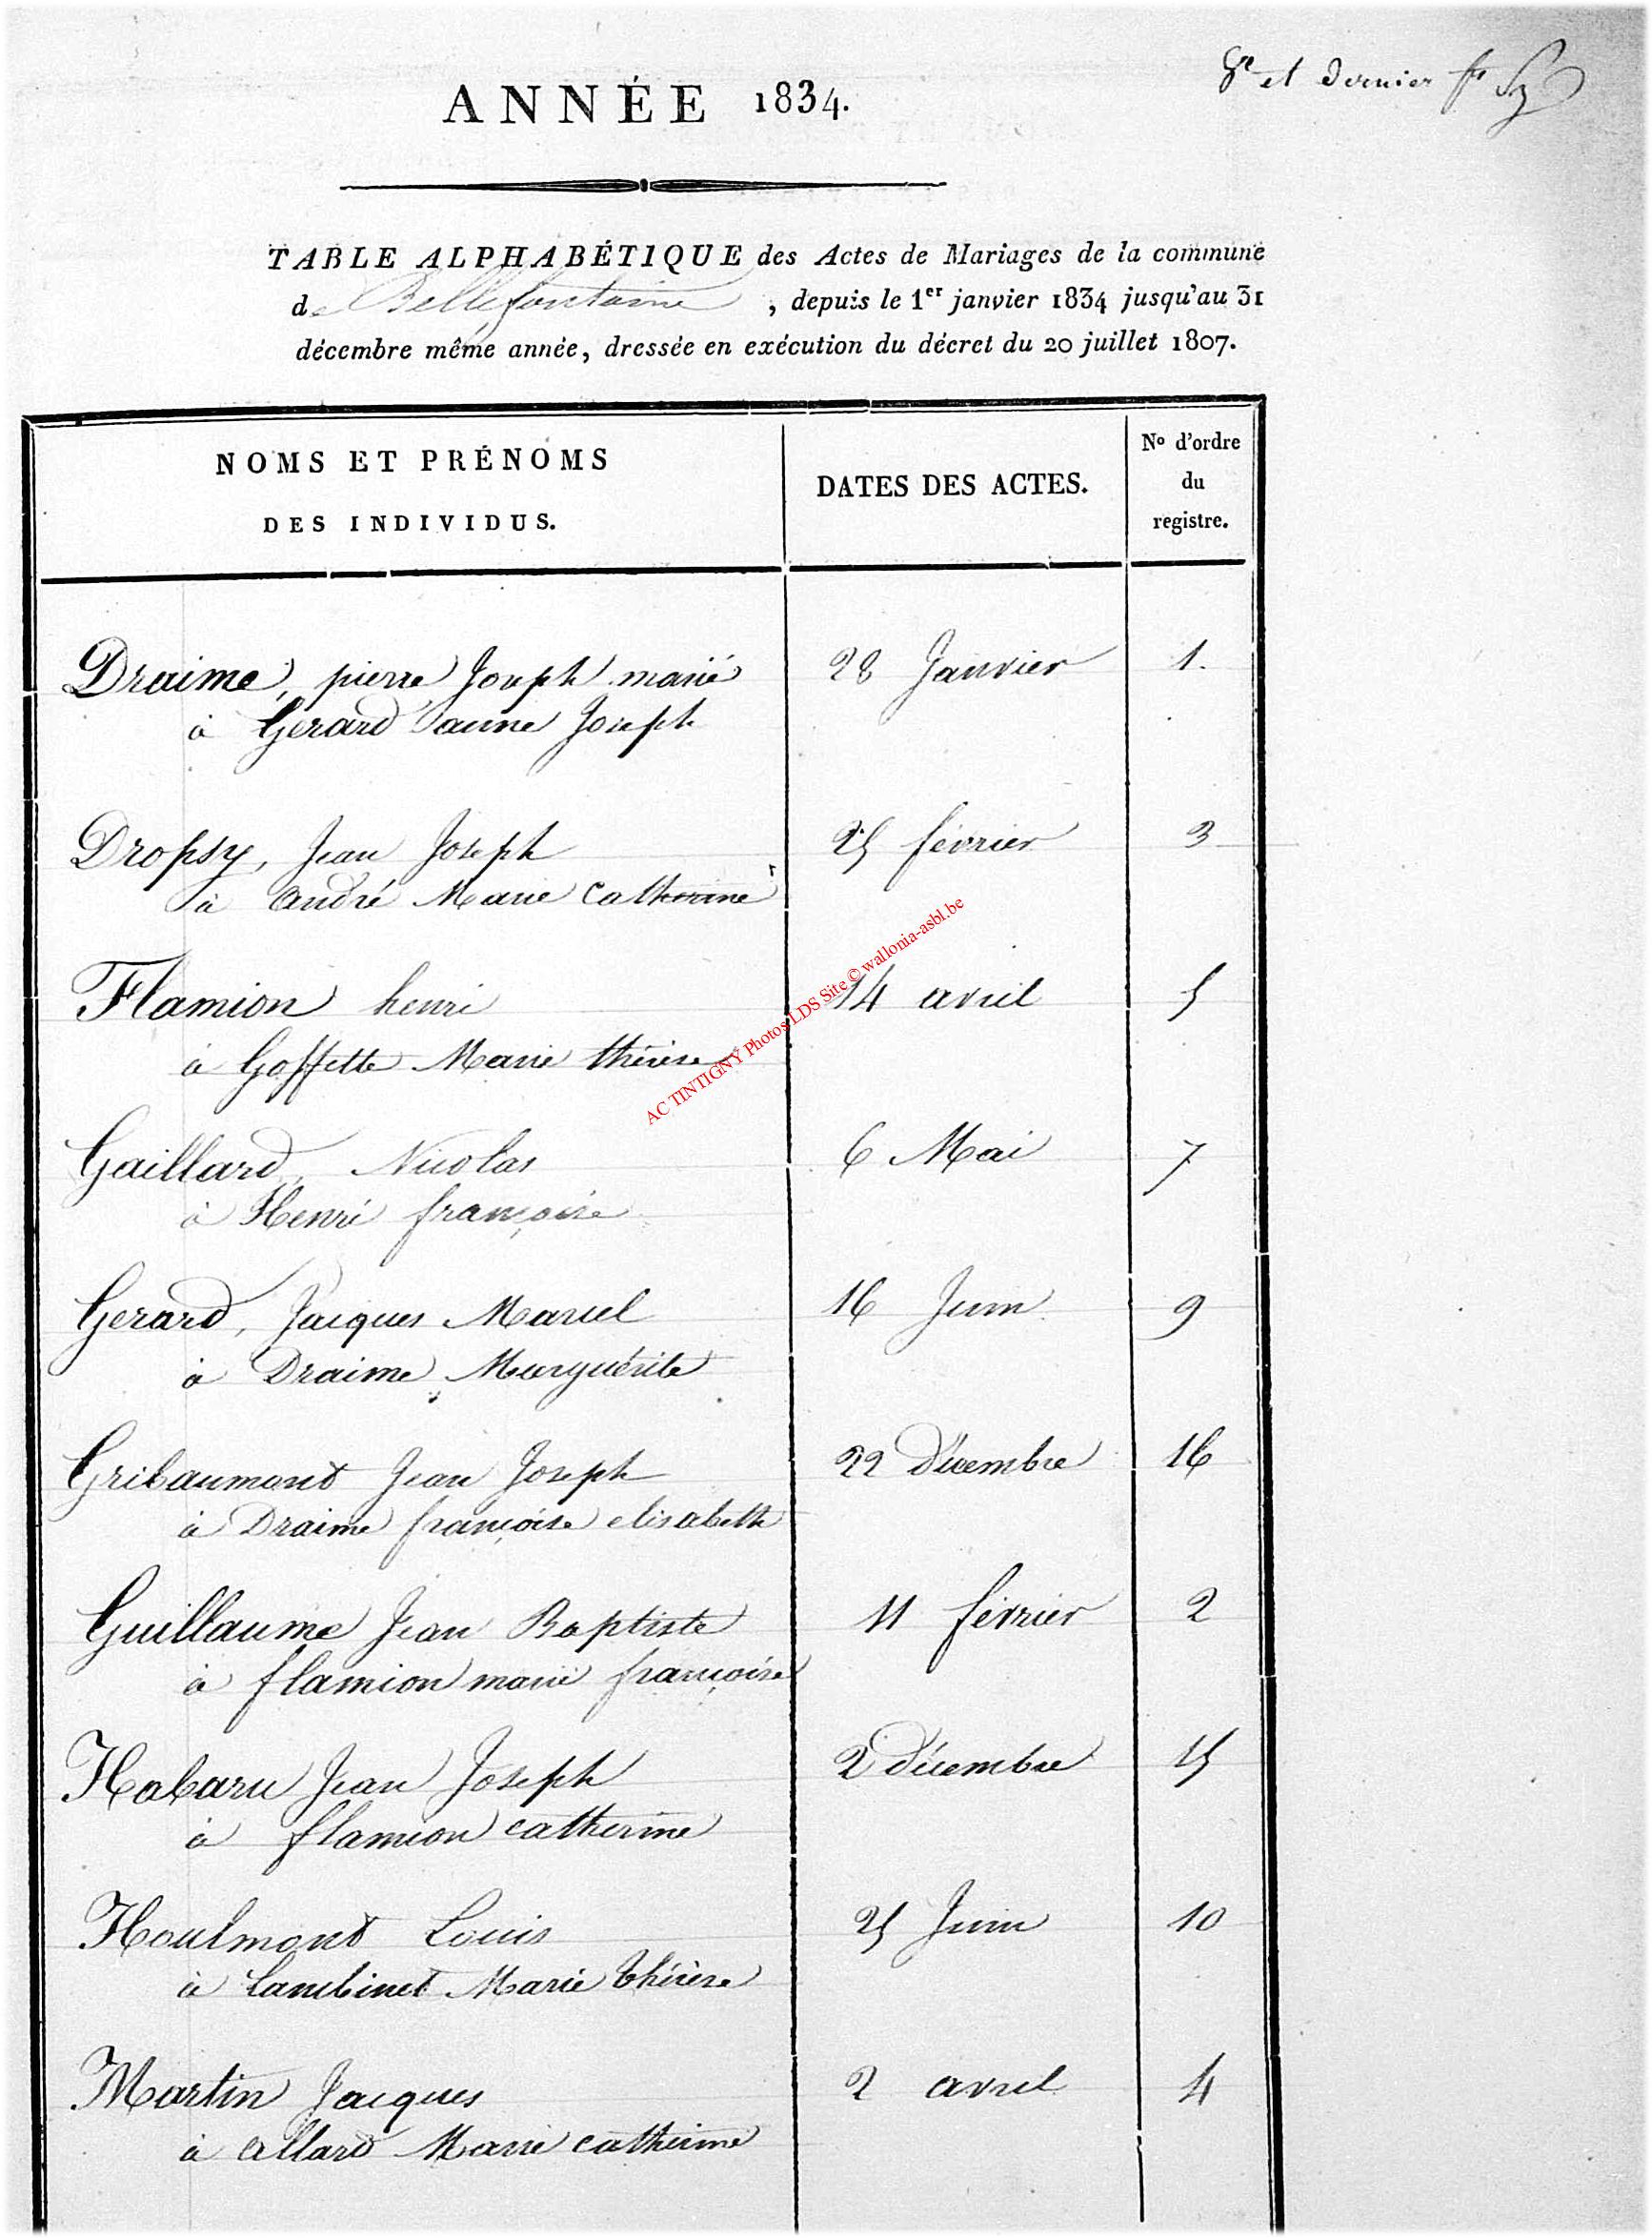 8e et dernier
ANNÉE 1834.
TABLE ALPHABÉTIQUE des Actes de Mariages de la commune
de Bellefontaine, depuis le 1er janvier 1834 jusqu'au 31
décembre même année, dressée en exécution du décret du 20 juillet 1807.
NOMS ET PRÉNOMS
DES INDIVIDUS.
DATES DES ACTES.
No d'ordre
du
registre.
Draime, pierre Joseph marié 28 Janvier 1.
à Gerard anne Joseph
Dropsy, Jean Joseph 25 février 3
à andré Marie Catherine
Flamion henri 14 avril 5
à Goffette Marie thérèse
Gaillard, Nicolas 6 Mai 7
à Henri françoise
Gerard, Jacques Marcel 16 Juin 9
à Draime Marguérite
Gribaumont Jean Joseph 22 Décembre 16
à Draime françoise elisabeth
Guillaume Jean Baptiste 11 février 2
à flamion marie françoise
Habaru Jean Joseph 2 Décembre 15
à flamion catherine
Houlmont Louis 25 Juin 10
à Lambinet Marie thérèse
Martin Jacques 2 avril 4
à allard Marie catherine
AC TINTIGNY Photos LDS Site © wallonia-asbl.be